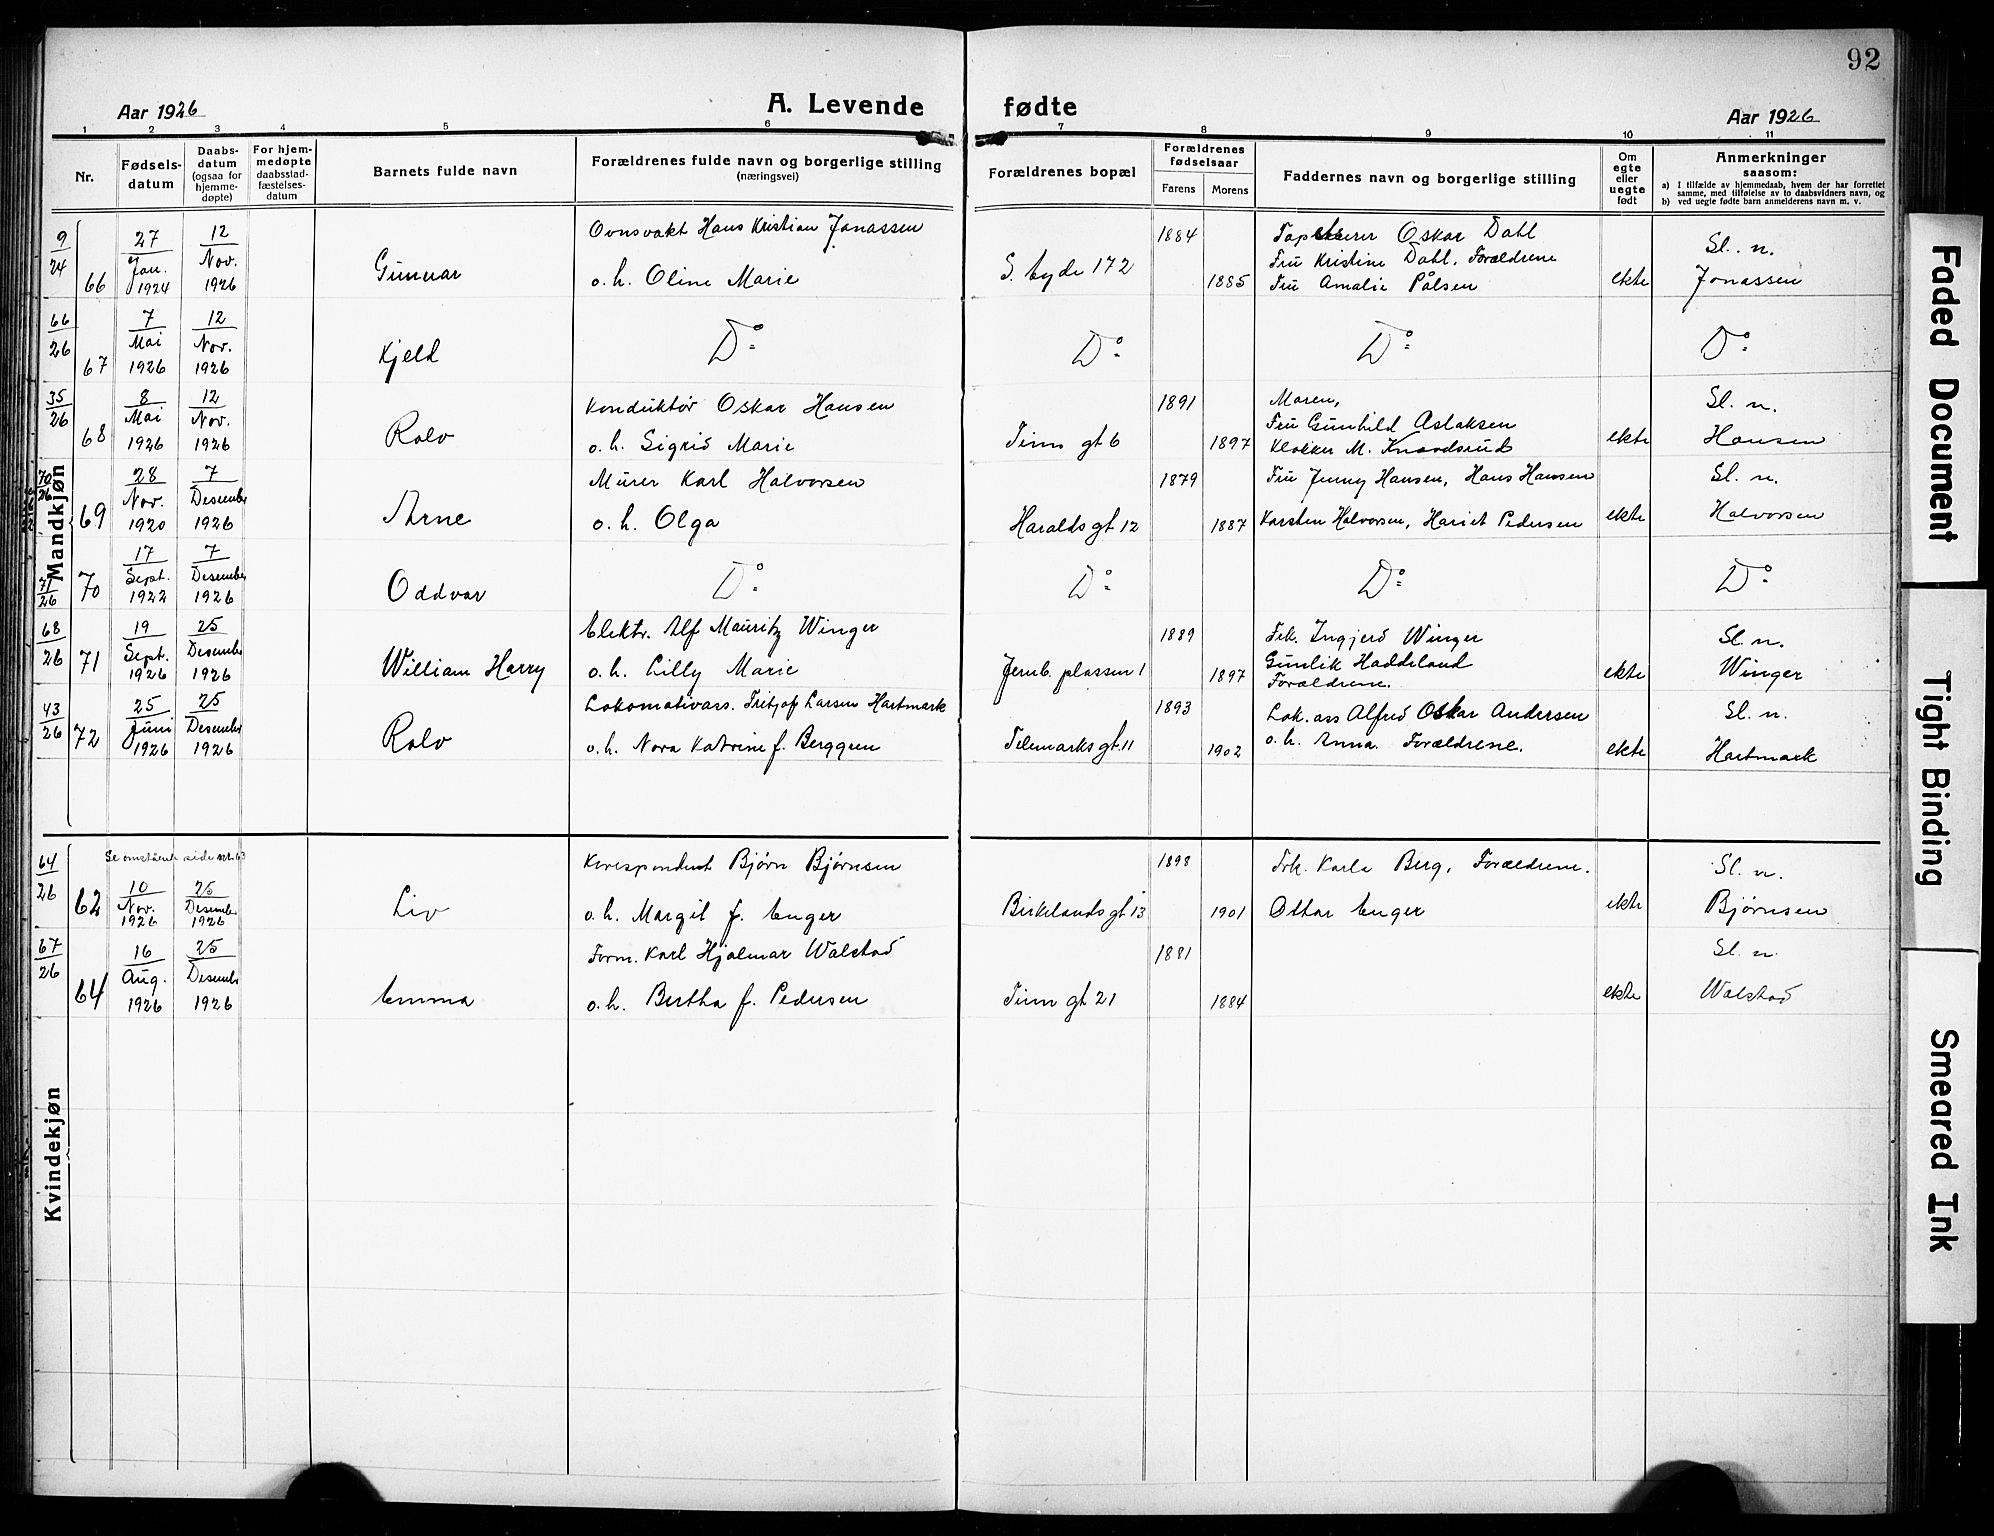 92
Aar 1926
A. Levende fødte
Aar 1926
1 2 3 4 5 6 7 8 9 10 11
Nr.
Fødsels-
datum
Daabs-
datum
(ogsaa for
hjemme-
døpte)
For hjem-
medøpte
daabsstad-
fæstelses-
datum
Barnets fulde navn
Forældrenes fulde navn og borgerlige stilling
(næringsvei)
Forældrenes bopæl
Forældrenes
fødselsaar
Farens Morens
Faddernes navn og borgerlige stilling
Om
egte
eller
uegte
født
Anmerkninger
saasom:
a) I tilfælde av hjemmedaab, hvem der har forrettet
samme, med tilføielse av to daabsvidners navn, og
b) ved uegte fødte barn anmelderens navn m. v.
Mandkjøn
9/24 66
27
Jan.
1924
12
Nov.
1926
Gunnar
Ovnsvakt Hans Kristian Jonassen
o. h. Oline Marie
S. byde 172
1884
1885
Tapetserer Oskar Dahl
Fru Kristine Dahl, Forældrene
Fru Amalie Pålsen
ekte
Sl. n.
Jonassen
66/26 67
7
Mai
1926
12
Nov.
1926
Kjeld
Do
Do
Do
Do
35/26 68
8
Mai
1926
12
Nov.
1926
Rolv
Konduktør Oskar Hansen
o. h. Sigrid Marie
Tinns gt 6
1891
1897
Moren,
Fru Gunhild Aslaksen
Klokker M. Knardsrud
ekte
Sl. n.
Hansen
70/26 69
28
Nov.
1920
7
Desember
1926
Arne
Murer Karl Halvorsen
o. h. Olga
Haralds gt 12
1879
1887
Fru Jenny Hansen, Hans Hansen
Karsten Halvorsen, Hariet Pedersen
ekte
Sl. n.
Halvorsen
71/26 70
17
Sept.
1922
7
Desember
1926
Oddvar
Do
Do
Do
Do
68/26 71
19
Sept.
1926
25
Desember
1926
William Harry
Elektr. Alf Mauritz Winger
o. h. Lilly Marie
Jernb. plassen 1
1889
1897
Frk. Ingjerd Winger
Gunlik Haddeland
Forældrene.
ekte
Sl. n.
Winger
43/26 72
25
Juni
1926
25
Desember
1926
Rolv
Lokomotivass. Fritjof Larsen Hartmark
o. h. Nora Katrine f. Berggren
Telemarks gt. 11
1893
1902
Lok. ass Alfred Oskar Andersen
o. h. Anna. Forældrene.
ekte
Sl. n.
Hartmark
Kvindekjøn
64/26 62
Se omstående side nr. 63
10
Nov.
1926
25
Desember
1926
Liv
Korespondent Bjørn Bjørnsen
o. h. Margit f. Enger
Birkelands gt 13
1898
1901
Frk. Karla Berg, Forældrene.
Ottar Enger
ekte
Sl. n.
Bjørnsen
67/26 64
16
Aug.
1926
25
Desember
1926
Emma
Form. Karl Hjalmar Walstad
o. h. Bertha f. Pedersen
Tinn gt 21
1881
1884
ekte
Sl. n.
Walstad
Faded Document
Tight Binding
Smeared Ink